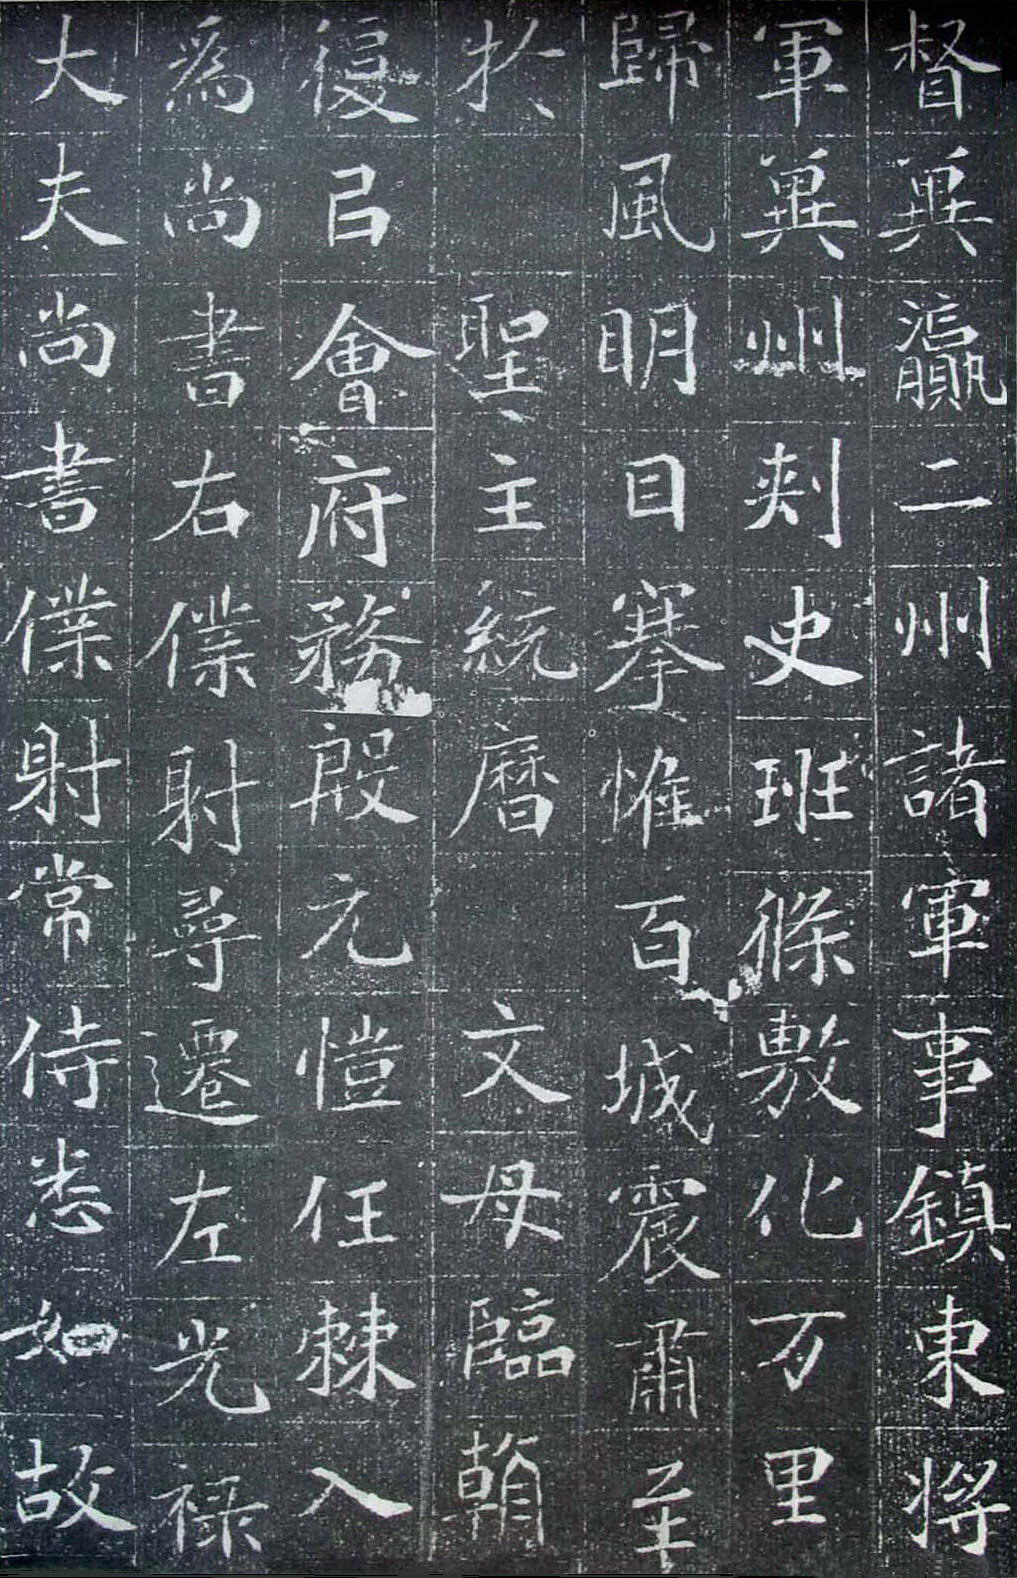 督冀瀛二州諸軍事鎮東將
軍冀州刺史班條敷化万里
歸風明目搴帷百城震肅至
於聖主統曆文母臨朝
復以會府務殷元愷任棘入
為尚書右僕射尋遷左光祿
大夫尚書僕射常侍悉如故